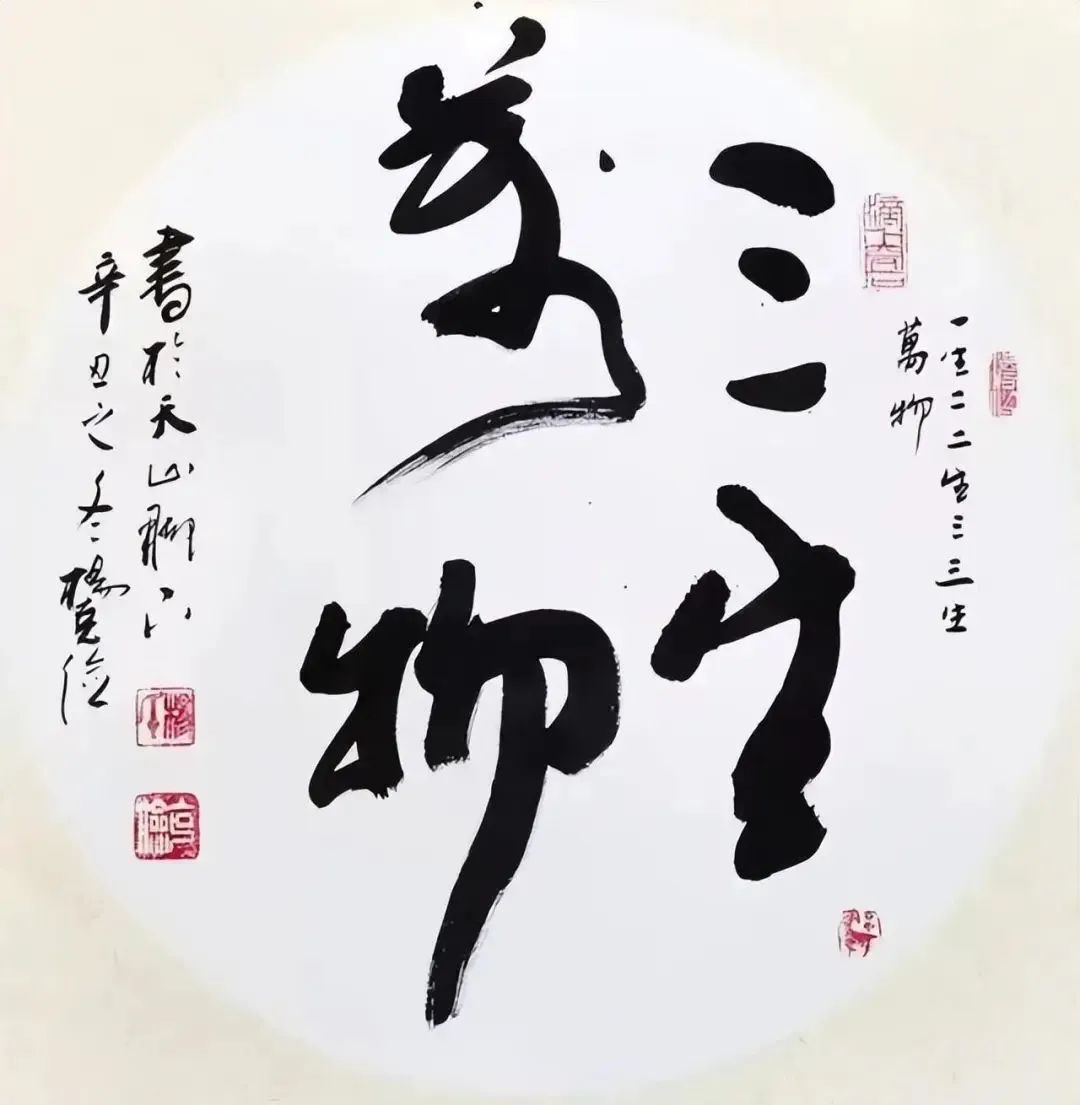 一生二二生三三生
萬物
三生
萬物
書於天山脚下
辛丑之冬楊克儉